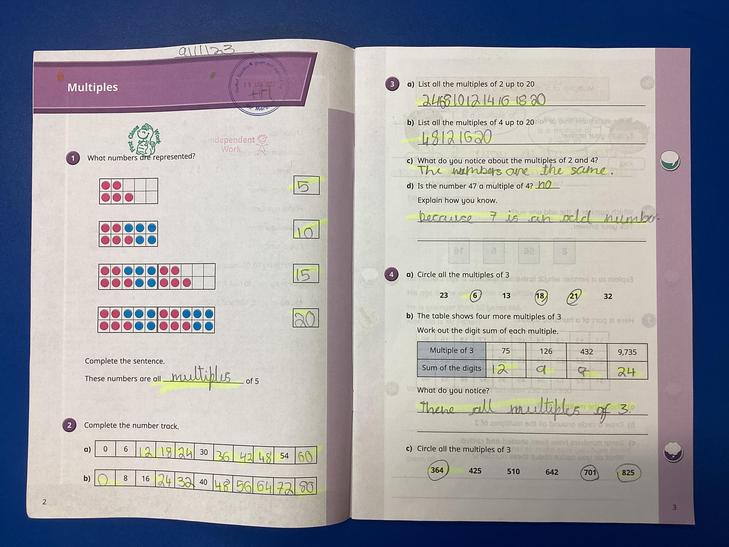 9/11/23
Multiples
Independent
Work
1 What numbers are represented?
5
10
15
20
Complete the sentence.
These numbers are all multiples of 5
2 Complete the number track.
a) 0 6 12 18 24 30 36 42 48 54 60
b) 0 8 16 24 32 40 48 56 64 72 80
2
3 a) List all the multiples of 2 up to 20
2 4 6 8 10 12 14 16 18 20
b) List all the multiples of 4 up to 20
4 8 12 16 20
c) What do you notice about the multiples of 2 and 4?
The numbers are the same.
d) Is the number 47 a multiple of 4? no
Explain how you know.
because 7 is an odd number.
4 a) Circle all the multiples of 3
23 6 13 18 21 32
b) The table shows four more multiples of 3
Work out the digit sum of each multiple.
Multiple of 3 75 126 432 9,735
Sum of the digits 12 9 9 24
What do you notice?
There all multiples of 3.
c) Circle all the multiples of 3
364 425 510 642 701 825
3